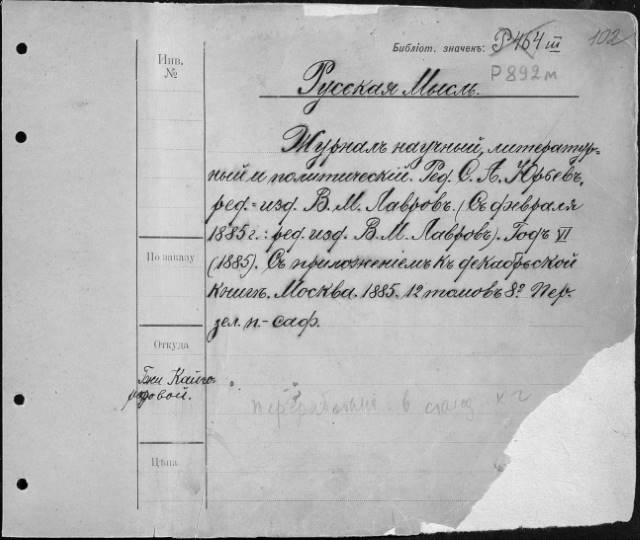 Библіот. значекъ: Р464 III
102
Р892м
Инв. №
Русская Мысль.
Журналъ научный, литератур-
ный и политическій. Ред. С. А. Юрьевъ,
ред.-изд. В. М. Лавровъ. (Съ февраля
1885 г.: ред. изд. В. М. Лавровъ). Годъ VI
(1885). Съ приложеніемъ къ декабрьской
книгѣ. Москва. 1885. 12 томовъ 8º. Пер.
зел. п.-саф.
По заказу
Откуда
Бки Кайго-
родовой.
в
Цѣна